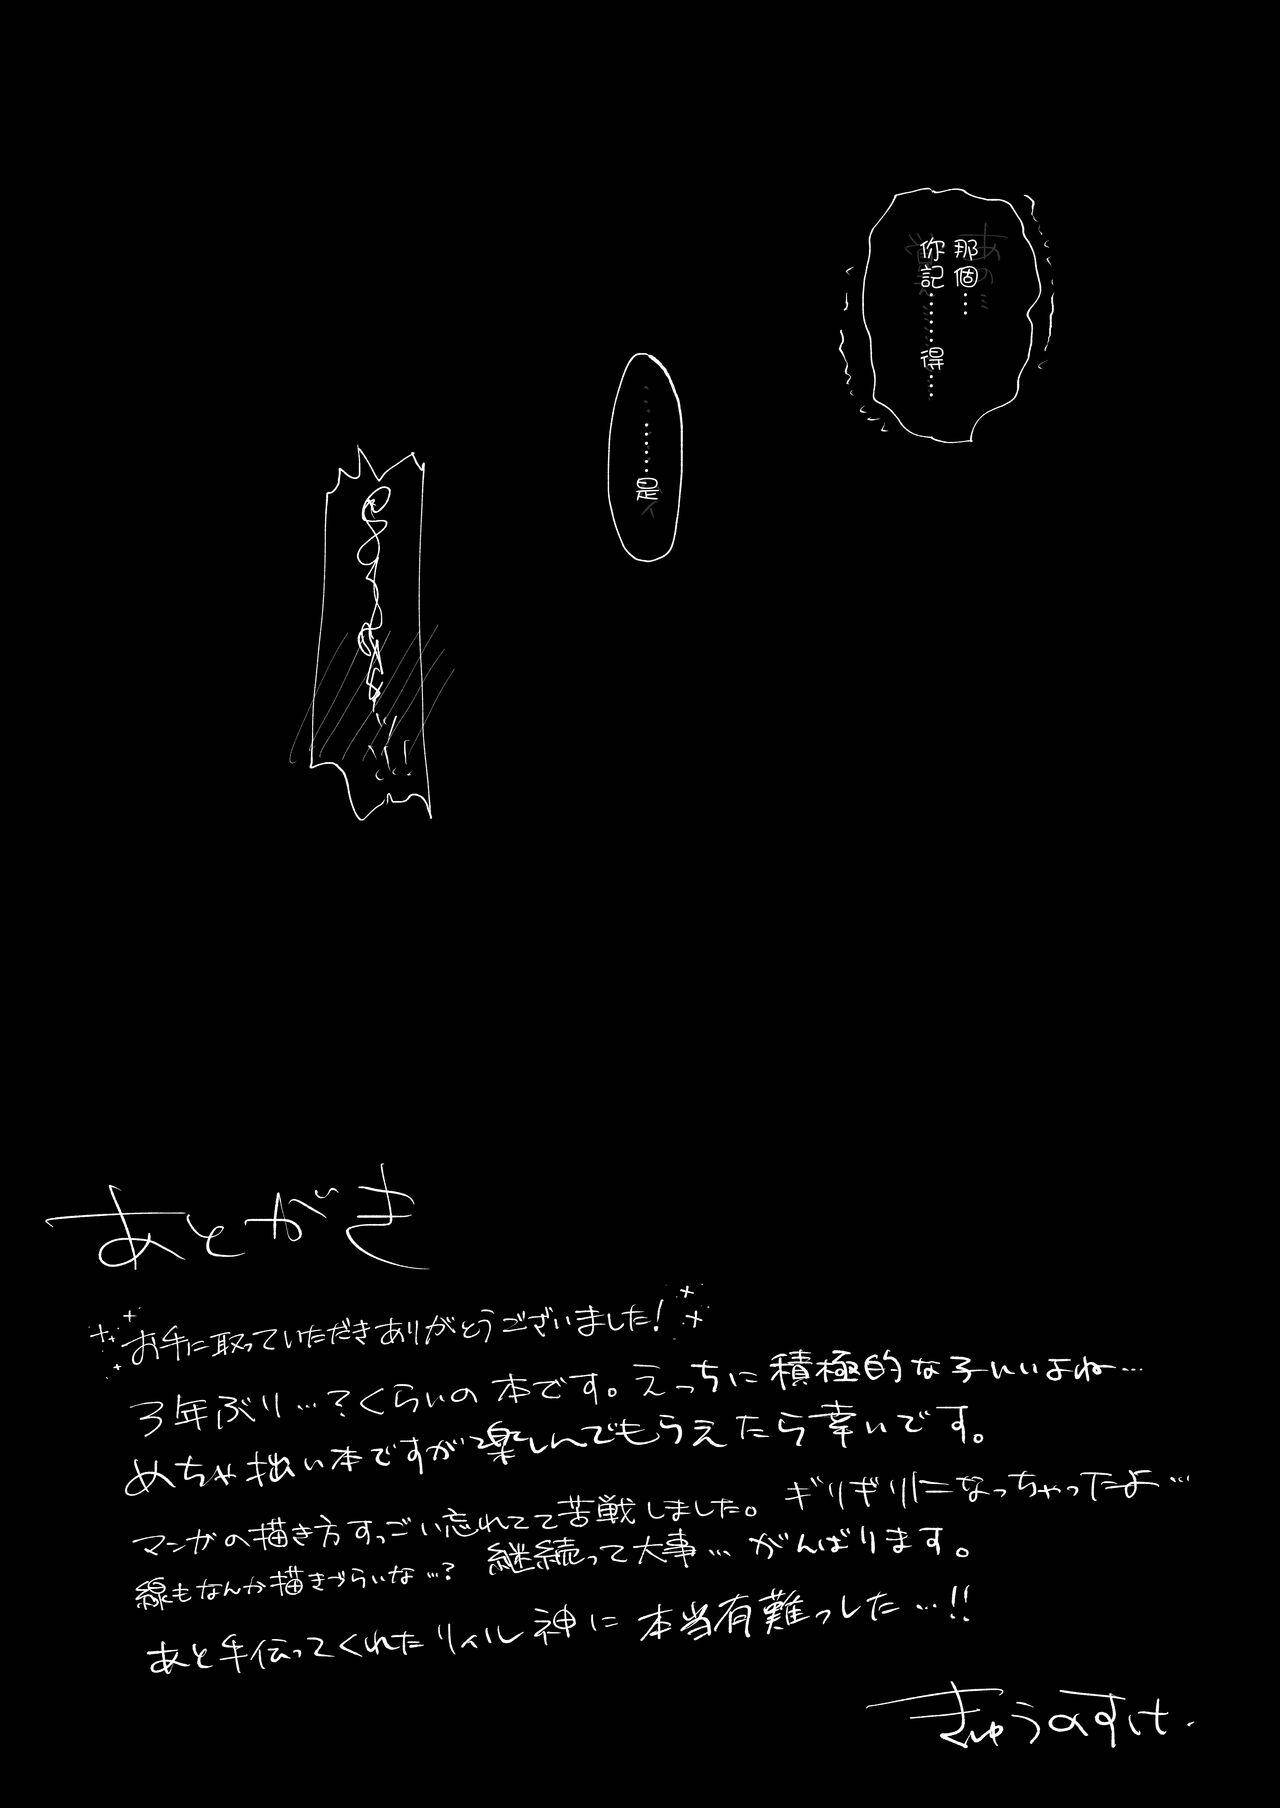 那個…
你記………得…
………是
あとがき
お手に取っていただきありがとうございました！
3年ぶり…？くらいの本です。えっちに積極的な子いいよね…
めちゃ拙い本ですが楽しんでもらえたら幸いです。
マンガの描き方すっごい忘れてて苦戦しました。ギリギリになっちゃったよ…
線もなんか描きづらいな…？継続って大事…がんばります。
あと手伝ってくれたリィル神に本当有難っした…!!
きゅうのすけ.